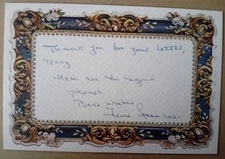 Thank you for your letter,
Tony
Here are the signed
photos.
Best wishes